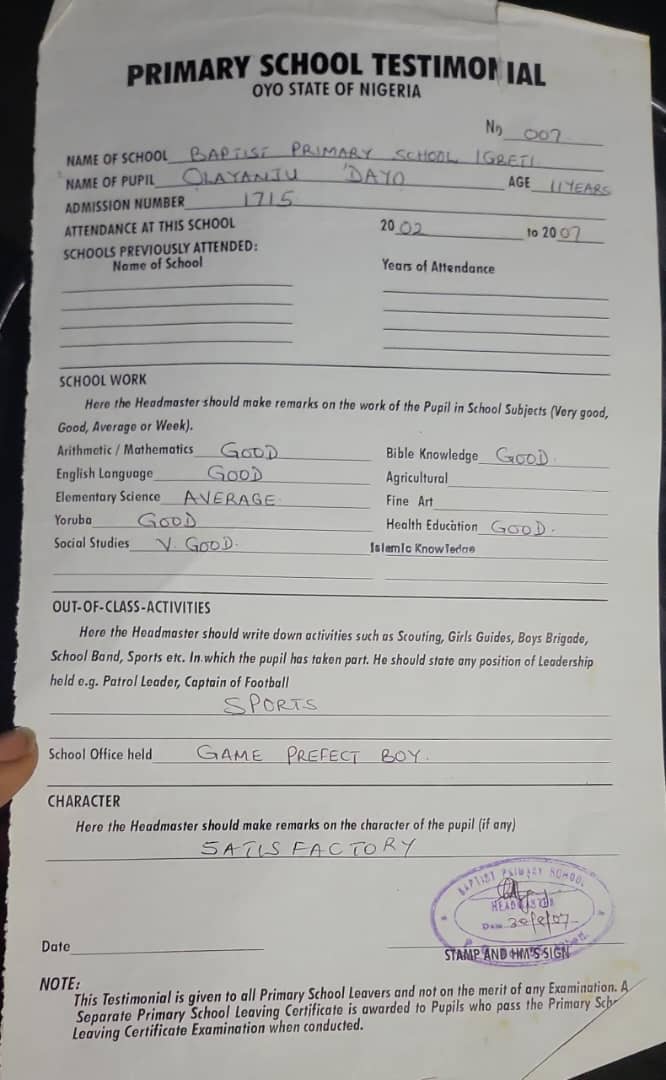 PRIMARY SCHOOL TESTIMONIAL
OYO STATE OF NIGERIA
No 007
NAME OF SCHOOL BAPTIST PRIMARY SCHOOL IGBETI
NAME OF PUPIL OLAYANJU 'DAYO AGE 11 YEARS
ADMISSION NUMBER 1715
ATTENDANCE AT THIS SCHOOL 20 02 to 20 07
SCHOOLS PREVIOUSLY ATTENDED:
Name of School Years of Attendance
SCHOOL WORK
Here the Headmaster should make remarks on the work of the Pupil in School Subjects (Very good,
Good, Average or Week).
Arithmetic / Mathematics GOOD Bible Knowledge GOOD.
English Language GOOD Agricultural
Elementary Science AVERAGE. Fine Art
Yoruba GOOD Health Education GOOD.
Social Studies V. GOOD. Islamic Knowledge
OUT-OF-CLASS-ACTIVITIES
Here the Headmaster should write down activities such as Scouting, Girls Guides, Boys Brigade,
School Band, Sports etc. In which the pupil has taken part. He should state any position of Leadership
held e.g. Patrol Leader, Captain of Football
SPORTS
School Office held GAME PREFECT BOY.
CHARACTER
Here the Headmaster should make remarks on the character of the pupil (if any)
SATISFACTORY
BAPTIST PRIMARY SCHOOL
HEADMASTER
Date
Date
STAMP AND HM'S SIGN
NOTE:
This Testimonial is given to all Primary School Leavers and not on the merit of any Examination. A
Separate Primary School Leaving Certificate is awarded to Pupils who pass the Primary
Leaving Certificate Examination when conducted.